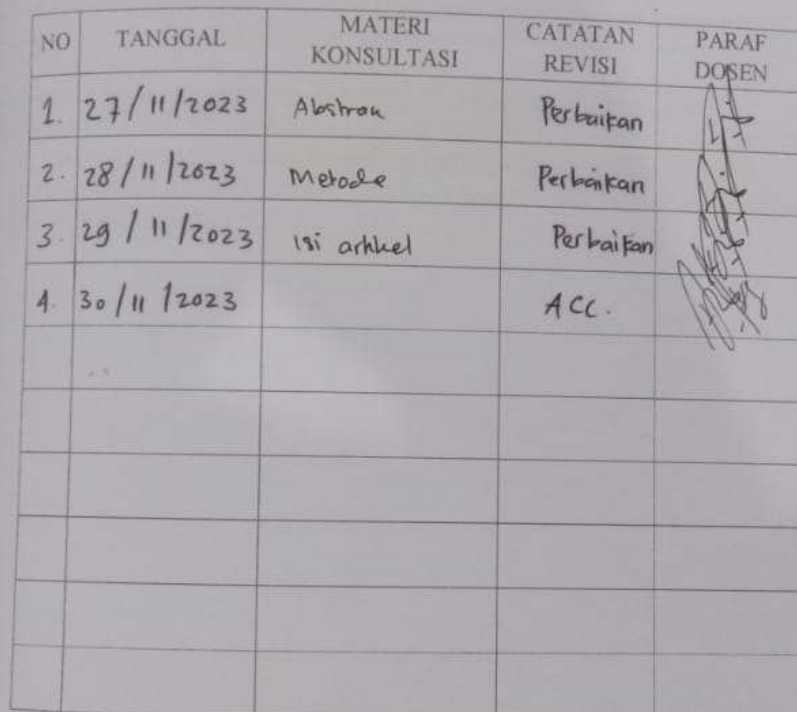 NO TANGGAL MATERI KONSULTASI CATATAN REVISI PARAF DOSEN
1. 27/11/2023 Abstrak Perbaikan
2. 28/11/2023 Metode Perbaikan
3. 29/11/2023 Isi artikel Perbaikan
4. 30/11/2023 ACC.